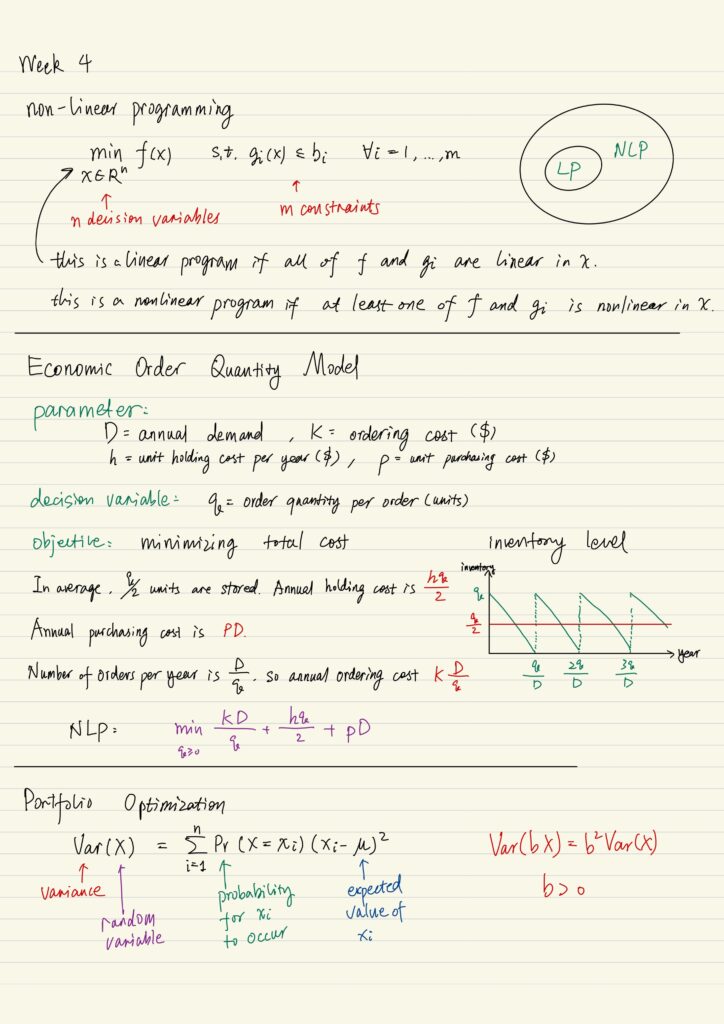 Week 4
non-linear programming
min f(x) s.t. gi(x) ≤ bi ∀i = 1, ..., m
x∈Rⁿ
n decision variables
m constraints
LP
NLP
this is a linear program if all of f and gi are linear in x.
this is a nonlinear program if at least one of f and gi is nonlinear in x.
Economic Order Quantity Model
parameter:
D = annual demand , K = ordering cost ($)
h = unit holding cost per year ($) , p = unit purchasing cost ($)
decision variable: q = order quantity per order (units)
objective: minimizing total cost
In average, q/2 units are stored. Annual holding cost is hq/2
Annual purchasing cost is PD.
Number of orders per year is D/q. so annual ordering cost K D/q
NLP: min KD/q + hq/2 + pD
q≥0
inventory level
inventory
q
q/2
year
q/D 2q/D 3q/D
Portfolio Optimization
Var(X) = Σ Pr (X = xi) (xi - μ)²
n
i=1
variance
random
variable
probability
for xi
to occur
expected
value of
xi
Var(bX) = b² Var(X)
b > 0